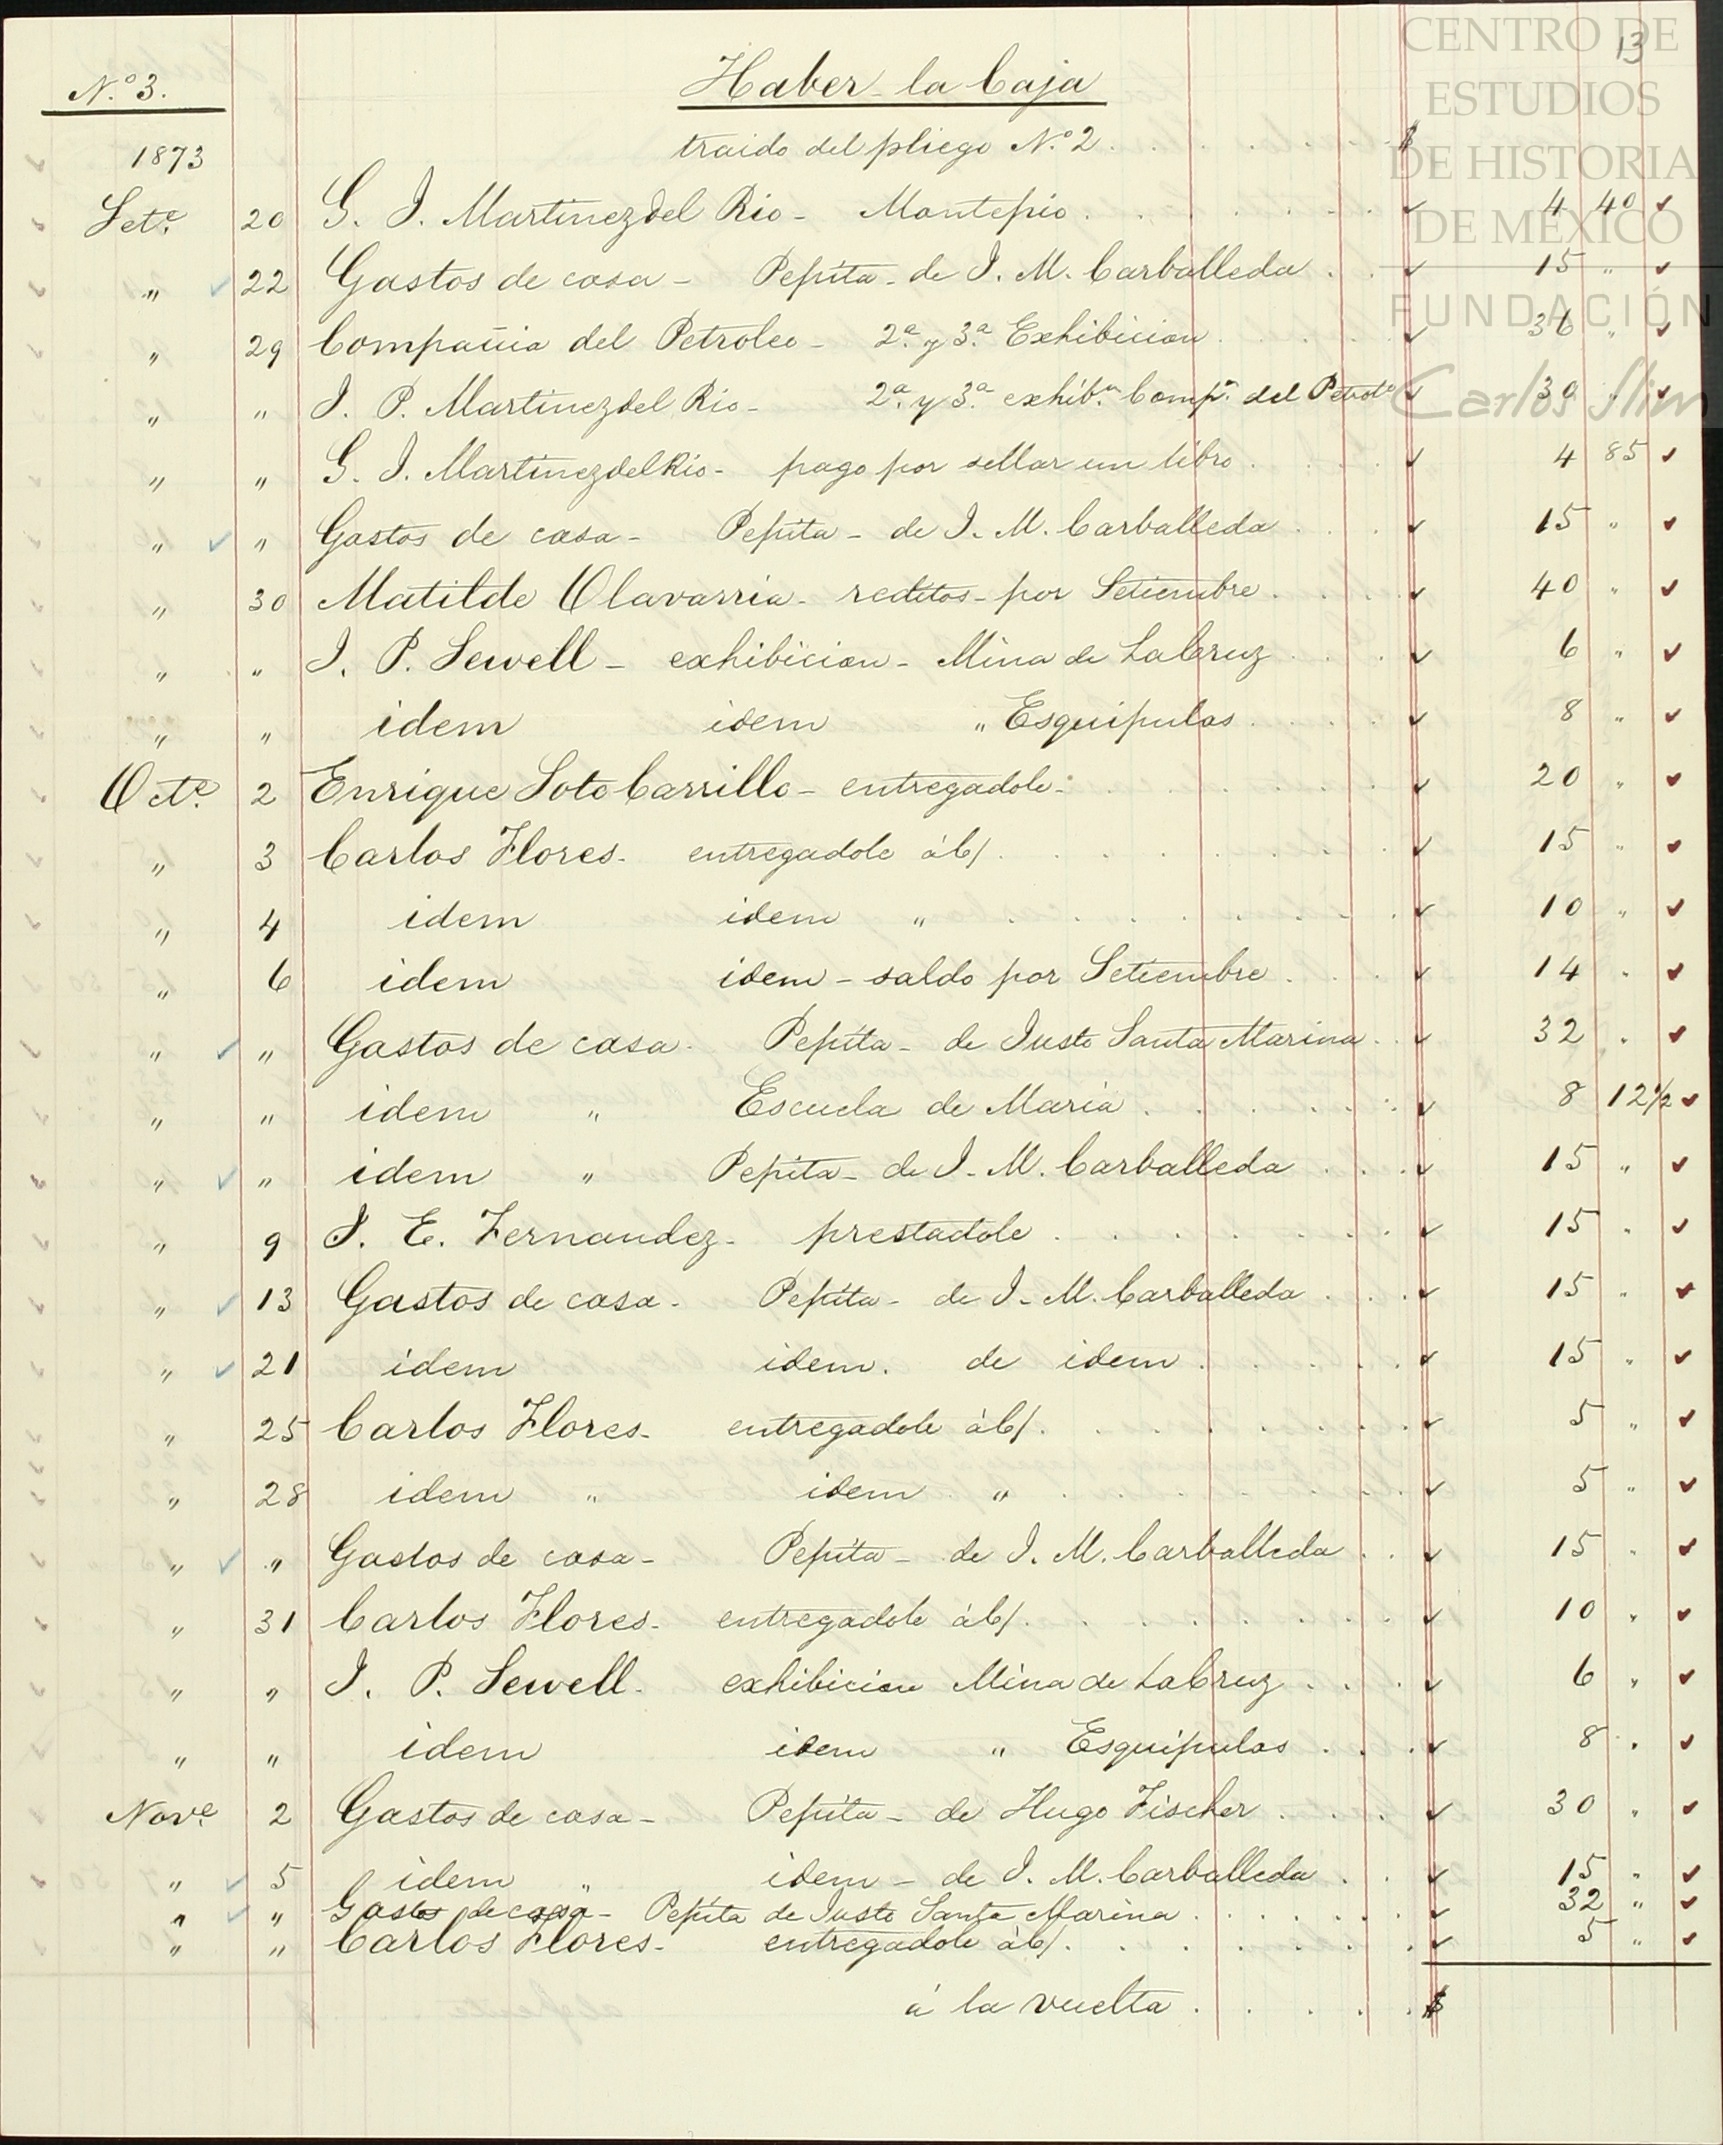 CENTRO DE
ESTUDIOS
DE HISTORIA
DE MÉXICO
FUNDACIÓN
Carlos Slim
13
N.º 3. Haber la Caja
1873 traido del pliego N.º 2 $
Sete. 20 G. I. Martinez del Rio - Montepio 4 40
" 22 Gastos de casa - Pepita - de I. M. Carballeda 15 "
" 29 Compañia del Petroleo - 2.ª y 3.ª Exhibicion 36 "
" " I. P. Martinez del Rio - 2.ª y 3.ª exhib.n Comp.ª del Petrolo 30 "
" " G. I. Martinez del Rio - pago por sellar un libro 4 85
" " Gastos de casa - Pepita - de I. M. Carballeda 15 "
" 30 Matilde Olavarria - reditos - por Setiembre 40 "
" " I. P. Sewell - exhibicion - Mina de La Cruz 6 "
" " idem idem " Esquipulas 8 "
Octe. 2 Enrique Soto Carrillo - entregadole 20 "
" 3 Carlos Flores - entregadole á c/ 15 "
" 4 idem idem " 10 "
" 6 idem idem - saldo por Setiembre 14 "
" " Gastos de casa - Pepita - de Justo Santa Marina 32 "
" " idem " Escuela de Maria 8 12 1/2
" " idem " Pepita - de I. M. Carballeda 15 "
" 9 I. E. Fernandez - prestadole 15 "
" 13 Gastos de casa - Pepita - de I. M. Carballeda 15 "
" 21 idem idem. de idem 15 "
" 25 Carlos Flores - entregadole á c/ 5 "
" 28 idem " idem " 5 "
" " Gastos de casa - Pepita - de I. M. Carballeda 15 "
" 31 Carlos Flores - entregadole á c/ 10 "
" " I. P. Sewell - exhibicion Mina de La Cruz 6 "
" " idem idem " Esquipulas 8 "
Nove. 2 Gastos de casa - Pepita - de Hugo Fischer 30 "
" 5 idem " idem - de I. M. Carballeda 15 "
" " Gastos de casa - Pepita de Justo Santa Marina 32 "
" " Carlos Flores - entregadole á c/ 5 "
á la vuelta $